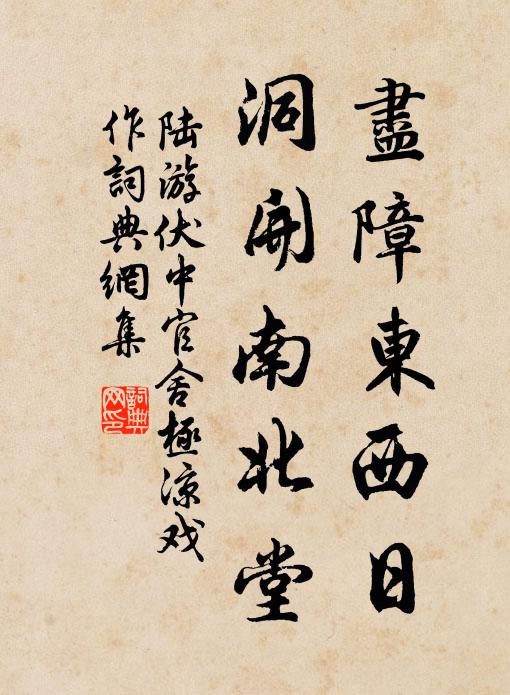 盡障東西日
洞開南北堂
陆游伏中官舍極凉戏
作詞典網集
詞典
网印